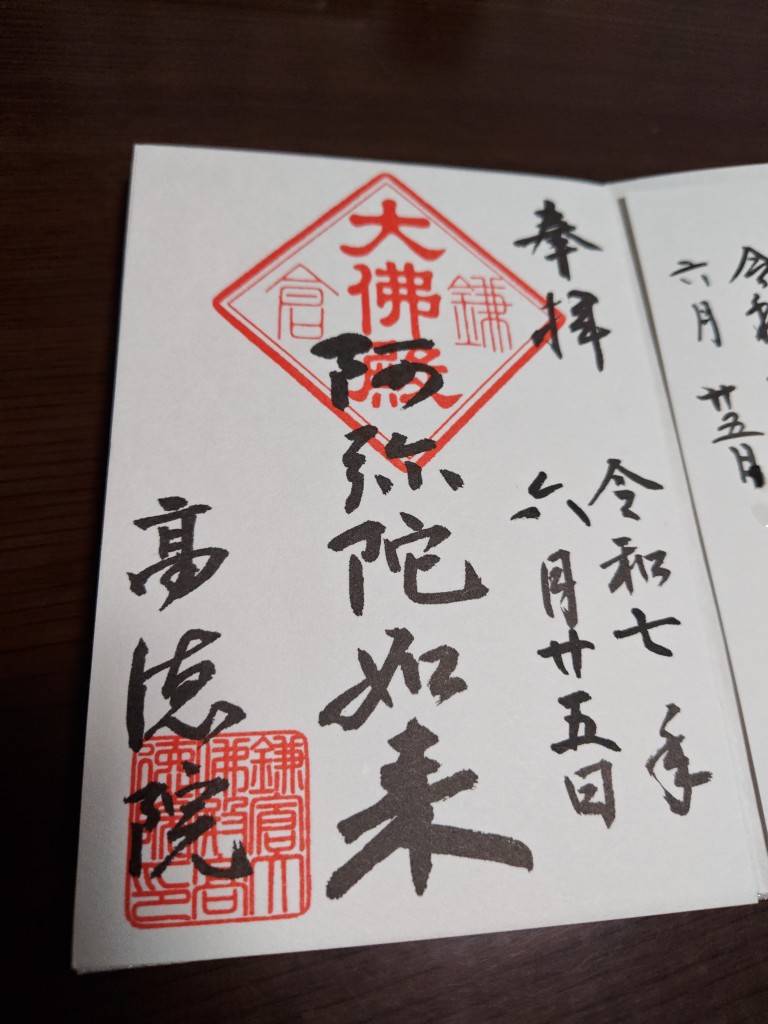 令和
六月 廿五日
奉拝
令和七年
六月廿五日
大佛殿
鎌倉
阿弥陀如来
高徳院
鎌倉大
佛殿高
徳院印